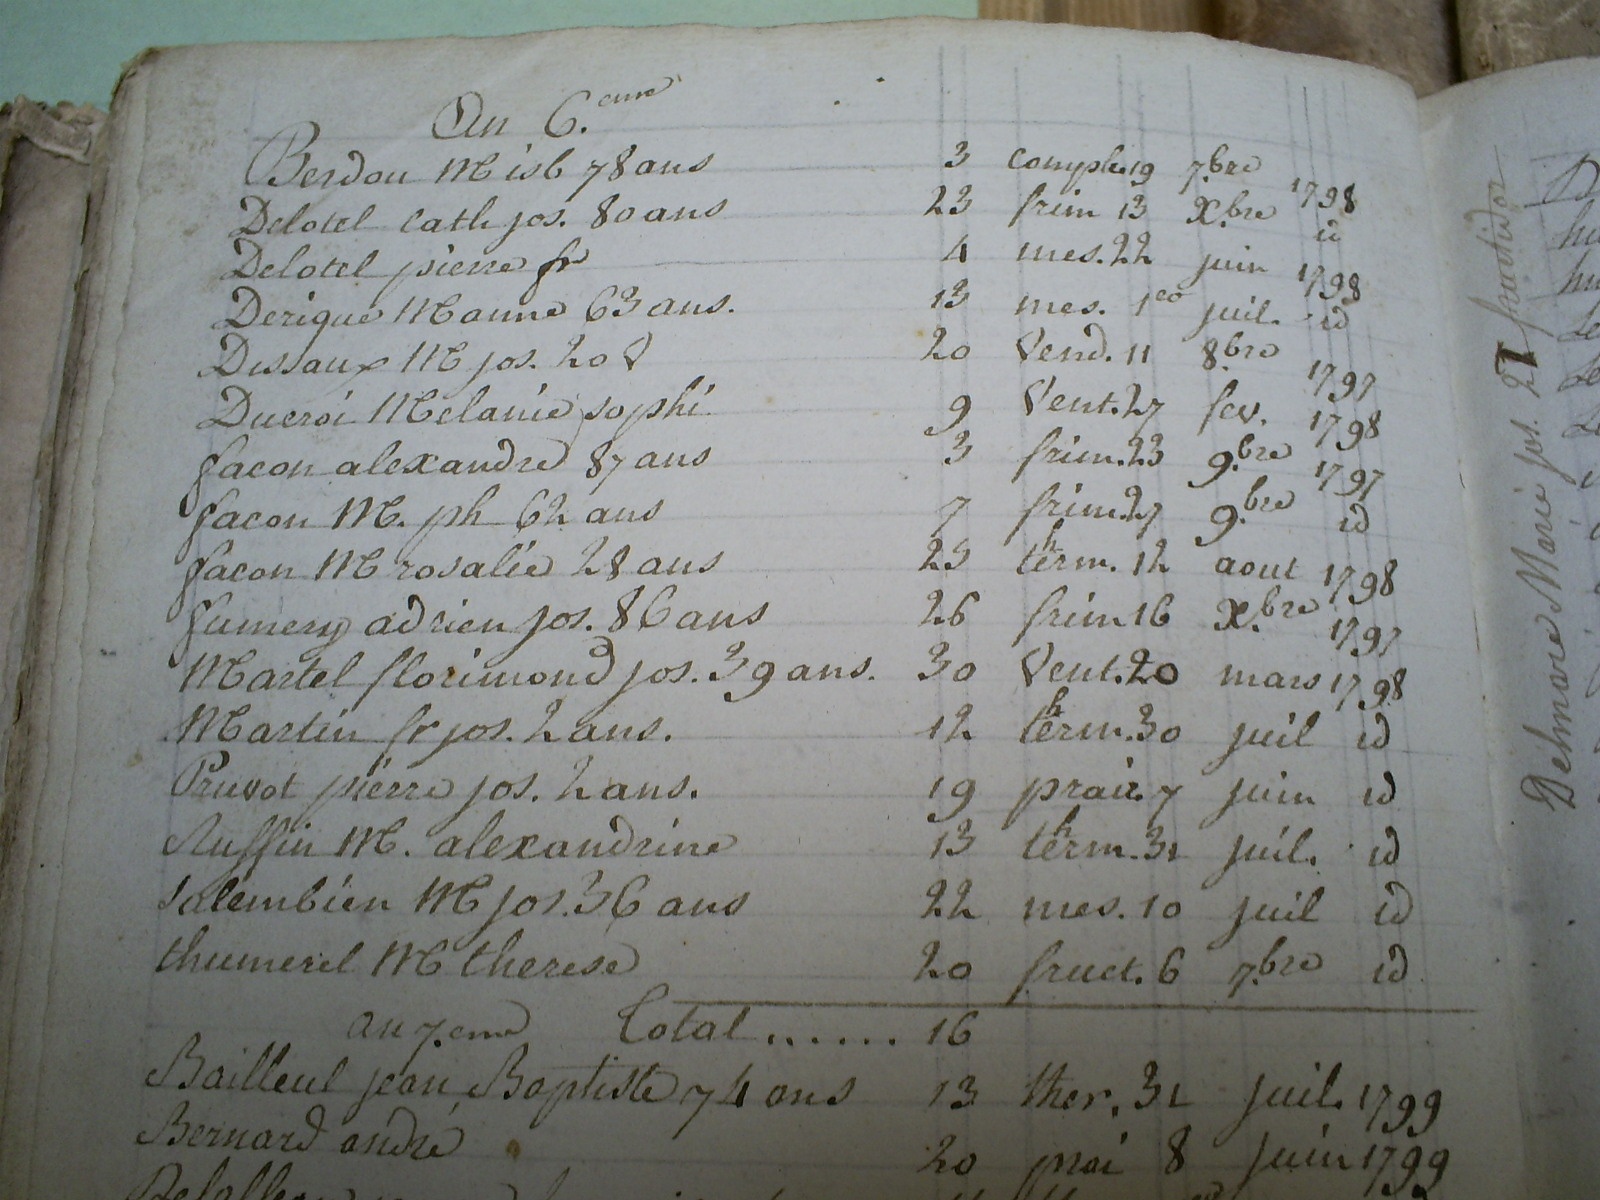 An 6.eme
Berdou M isb 78 ans 3 comple 19 7.bre 1798
Delotel cath jos. 80 ans 23 frim 13 X.bre id
Delotel pierre fr 4 mes. 22 juin 1798
Derique M anne 63 ans. 13 mes. 1er juil. id
Dussaux M jos. 20 20 Vend. 11 8.bre 1797
Ducroi Melanie sophi 9 Vent. 27 fev. 1798
facon alexandre 87 ans 3 frim. 23 9.bre 1797
facon M. ph 62 ans 7 frim. 27 9.bre id
facon M rosalie 28 ans 25 therm. 12 aout 1798
fumery adrien jos. 86 ans 26 frim 16 X.bre 1797
Martel florimond jos. 39 ans. 30 Vent. 20 mars 1798
Martin fr jos. 2 ans. 12 therm. 30 juil id
Pruvot pierre jos. 2 ans. 19 prair. 7 juin id
Ruffin M. alexandrine 13 therm. 31 juil. id
Salembien M jos. 36 ans 22 mes. 10 juil id
thumerel M therese 20 fruct. 6 7.bre id
an 7.eme Total ....... 16
Bailleul jean Baptiste 74 ans 13 ther. 31 juil. 1799
Bernard andré 20 prai 8 juin 1799
Delmarre Marie jos. 27 fructidor